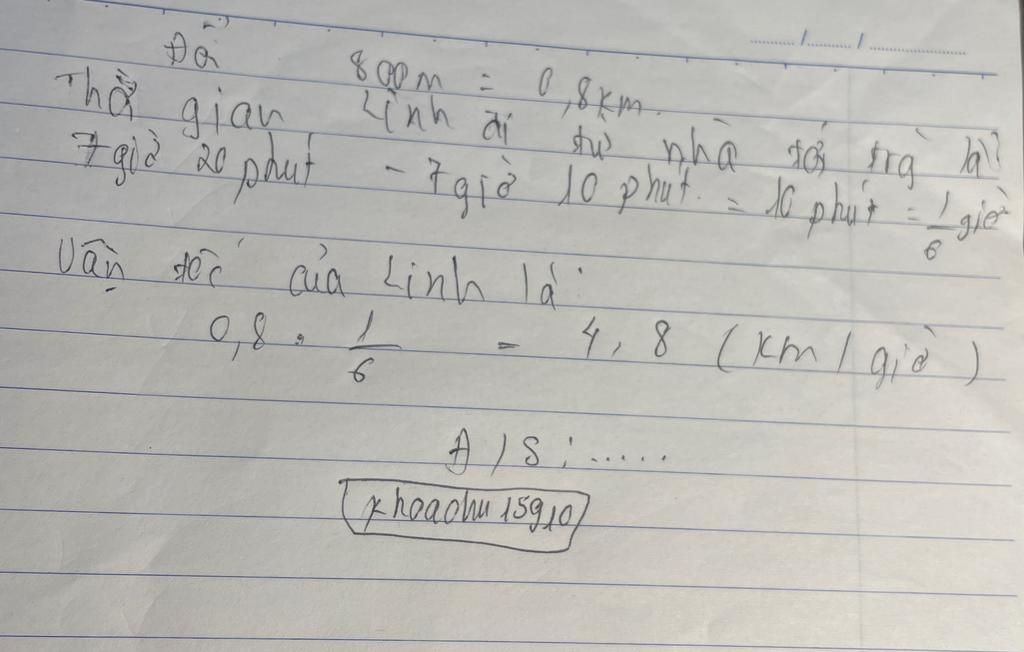 ....../....../............
Đổi 800m = 0,8km.
Thời gian Linh đi từ nhà tới trg là:
7 giờ 20 phút - 7 giờ 10 phút. = 10 phút = 1/6 giờ
Vận tốc của Linh là:
0,8 : 1/6 = 4,8 (km/giờ)
Đ/S: .....
khoachu15910